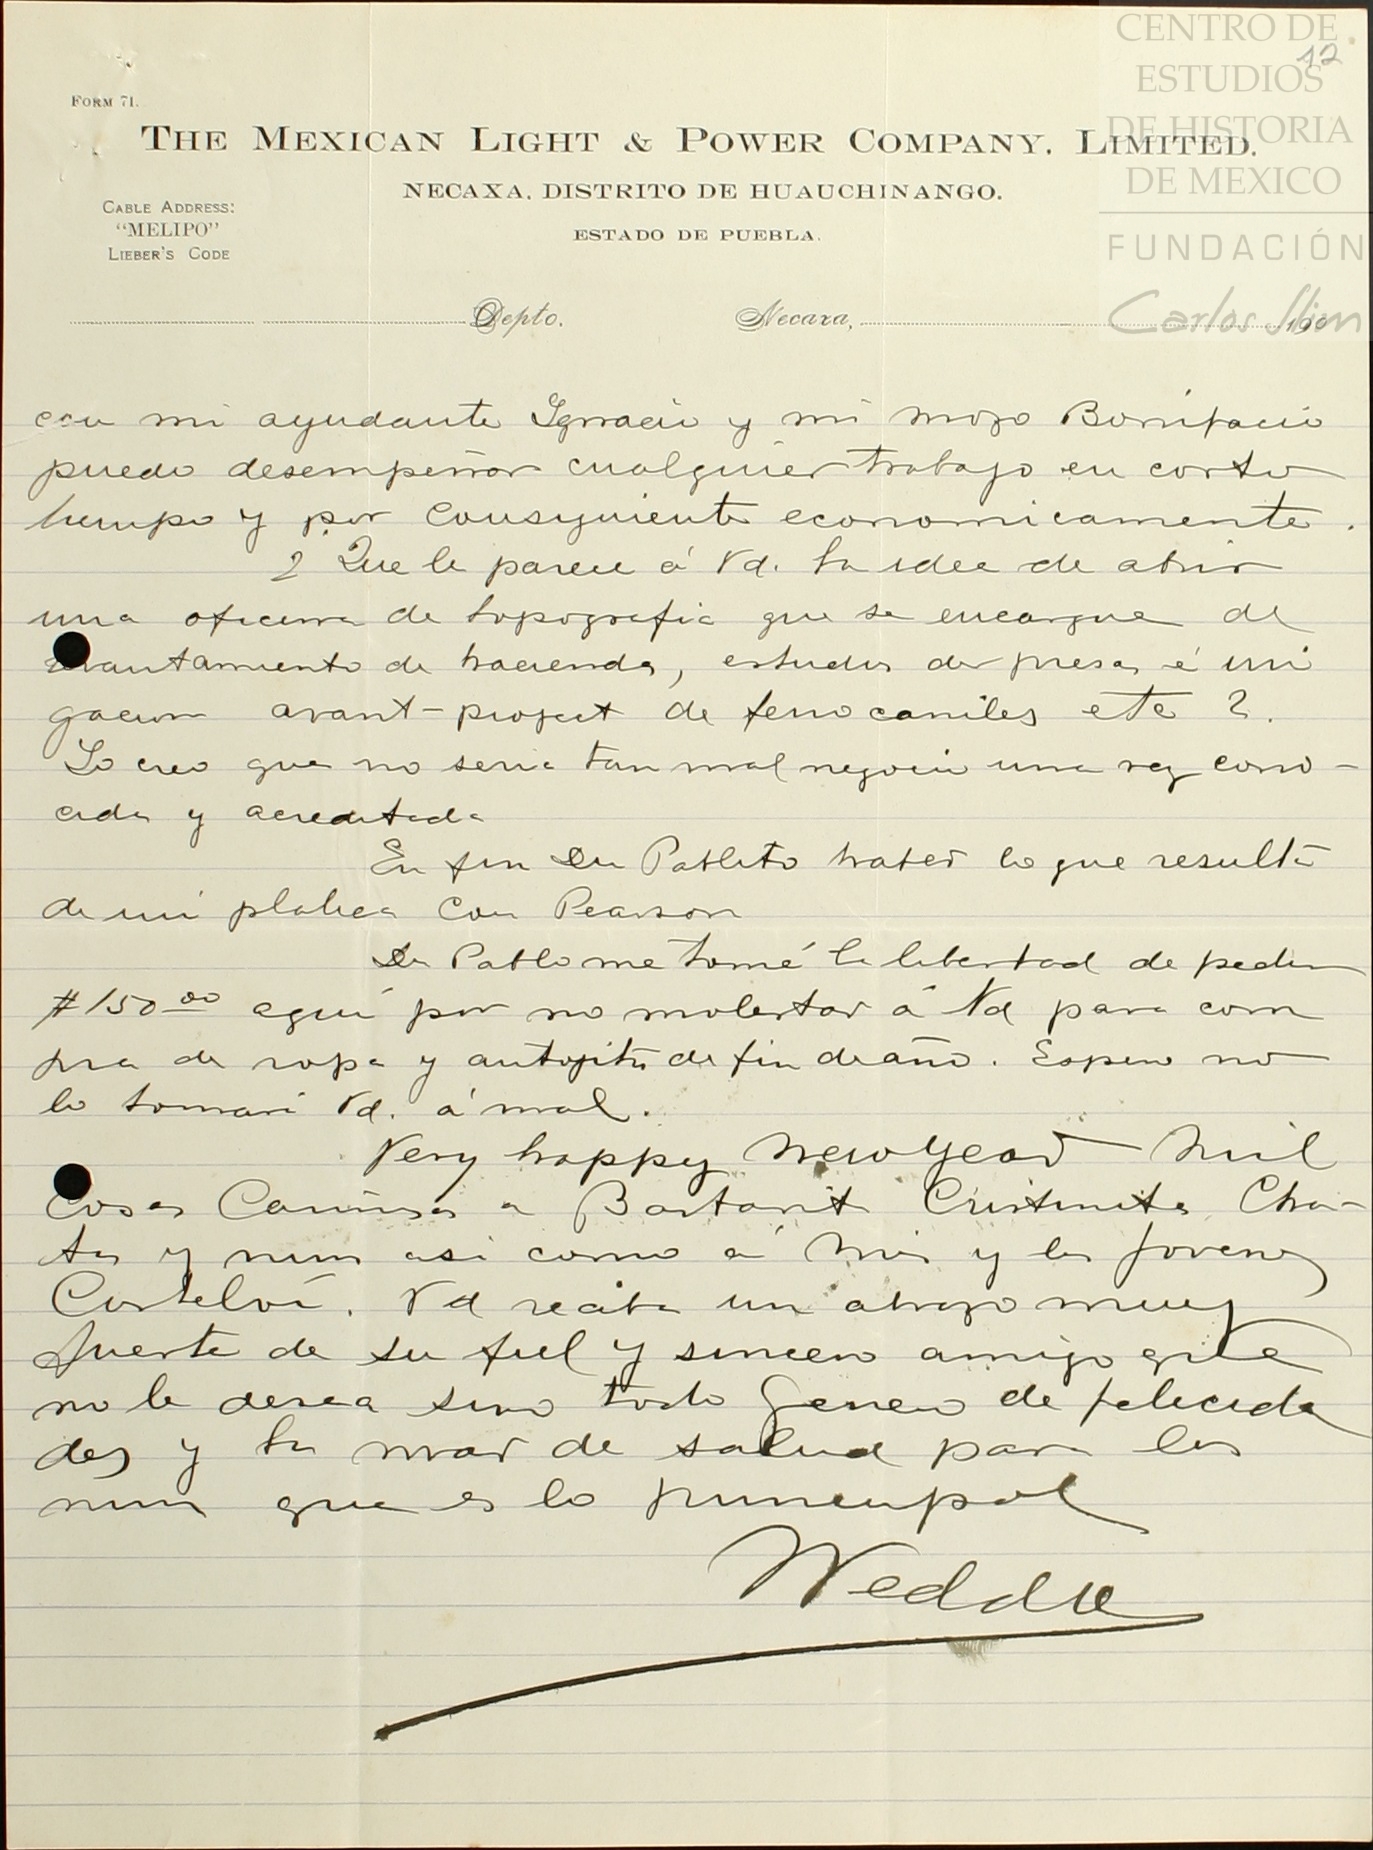 CENTRO DE
ESTUDIOS
DE HISTORIA
DE MEXICO
FUNDACIÓN
Carlos Slim
12
FORM 71.
THE MEXICAN LIGHT & POWER COMPANY, LIMITED.
NECAXA, DISTRITO DE HUAUCHINANGO.
ESTADO DE PUEBLA.
CABLE ADDRESS:
"MELIPO"
LIEBER'S CODE
Depto. Necaxa, 190
con mi ayudante Ignacio y mi mozo Bonifacio
puedo desempeñar cualquier trabajo en corto
tiempo y por consiguiente economicamente.
¿ Que le parece á Vd. la idea de abrir
una oficina de topografia que se encargue de
levantamiento de hacienda, estudios de presas é irri
gacion avant-project de ferrocarriles etc ?.
Yo creo que no seria tan mal negocio una vez cono-
cida y acreditada
En fin Dn Pablito haber lo que resulta
de mi platica con Pearson
Dn Pablo me tomé la libertad de pedir
$150.00 aquí por no molestar á Vd para com
pra de ropa y antojitos de fin de año. Espero no
lo tomará Vd. á mal.
Very happy New Year Mil
cosas Cariñosas a Cristinita, Cha-
tas y nena asi como á y los Jovenes
Vd reciba un abrazo muy
fuerte de su fiel y sincero amigo que
no le desea sino todo genero de felicida
des y la mar de salud para los
que es lo principal
Weddle